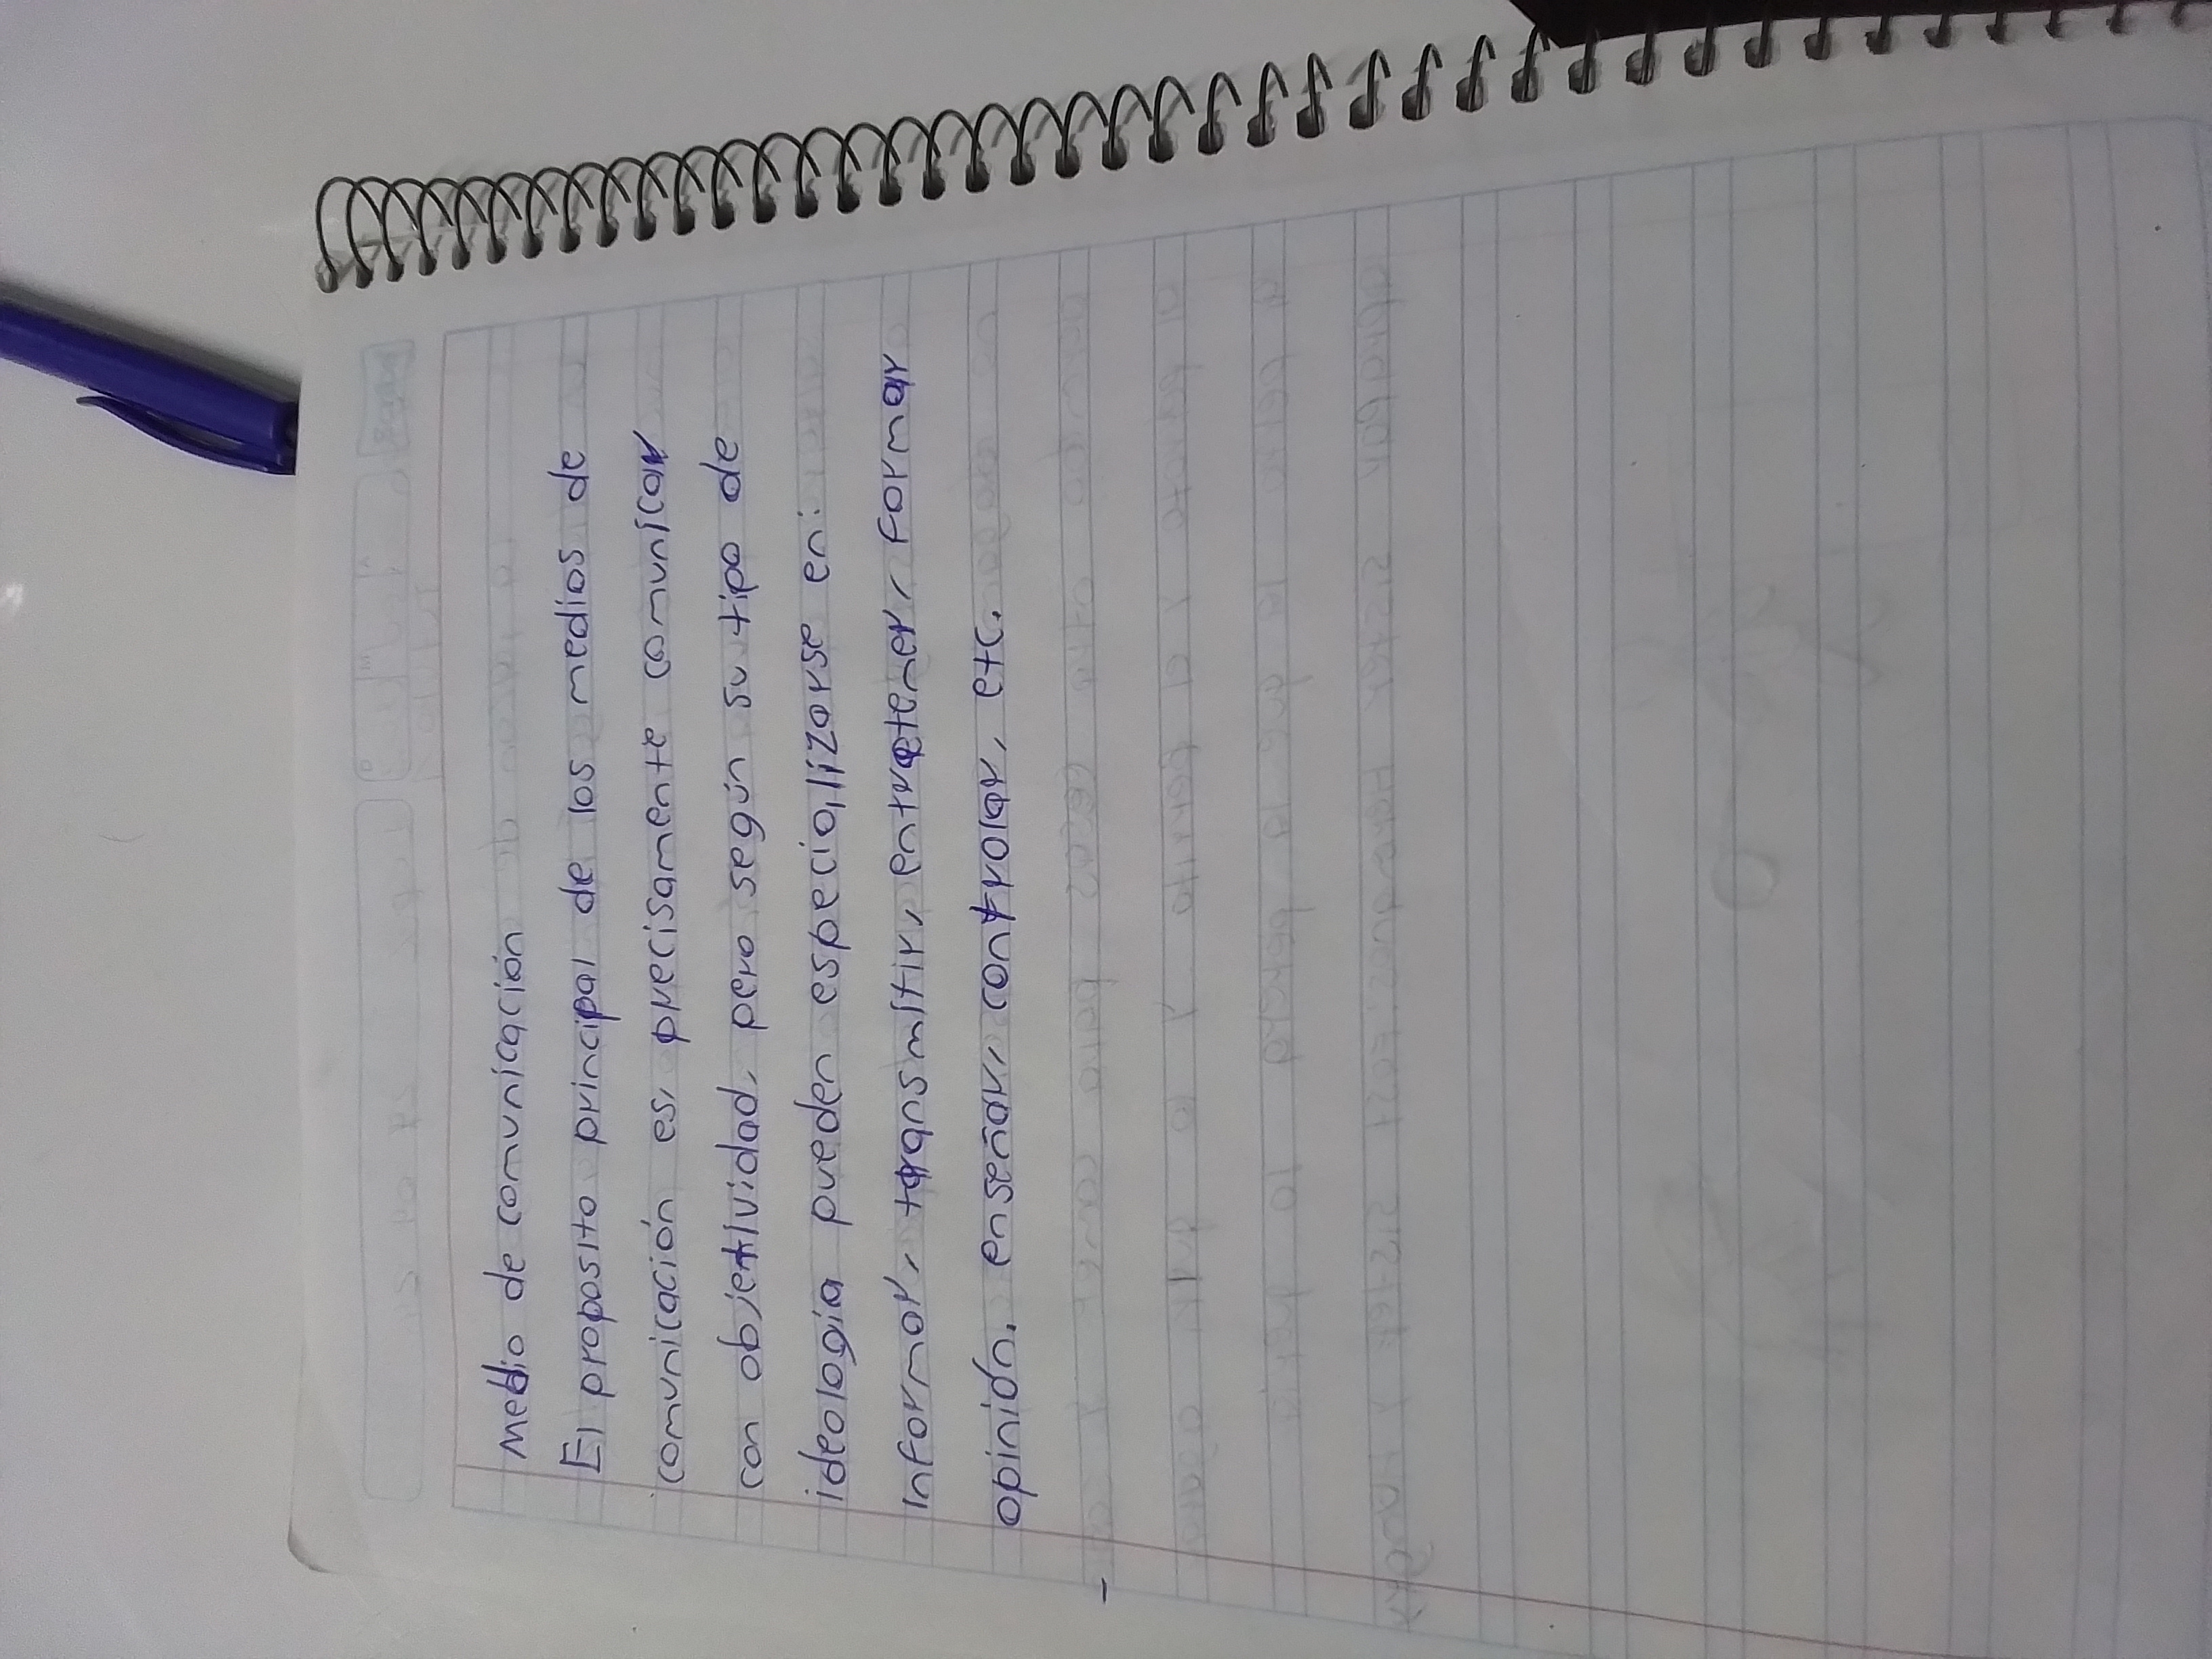 Medio de comunicación
El proposito principal de los medios de
comunicación es, precisamente comunicar
con objetividad, pero según su tipo de
ideología pueden especializarse en:
Informar, transmitir, entretener, formar
opinión, enseñar, controlar, etc.